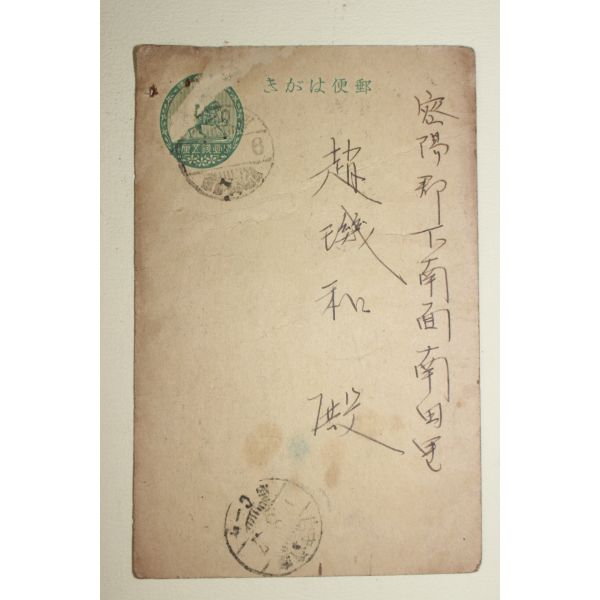 郵便はがき
密陽郡下南面南田里
趙璣和 殿
壹錢五厘